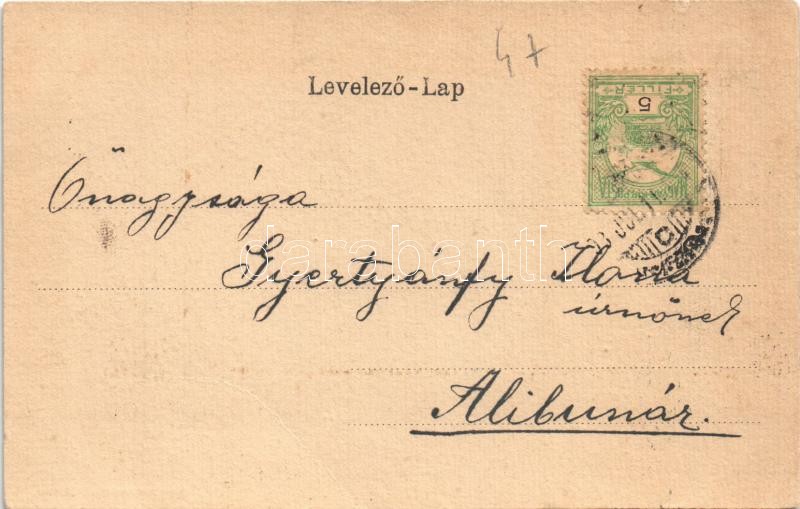 47
Levelező-Lap
FILLÉR
5
Őnagysága
Gyertyánfy Ilona
úrnőnek
Alibunár.
JUL
C
darabanth